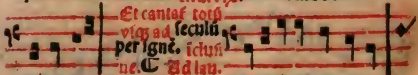 Et cantaƭ totũ
vſqꝫ ad ſeculũ
per ignẽ. icluſi
ue. ¶ Ad lau.